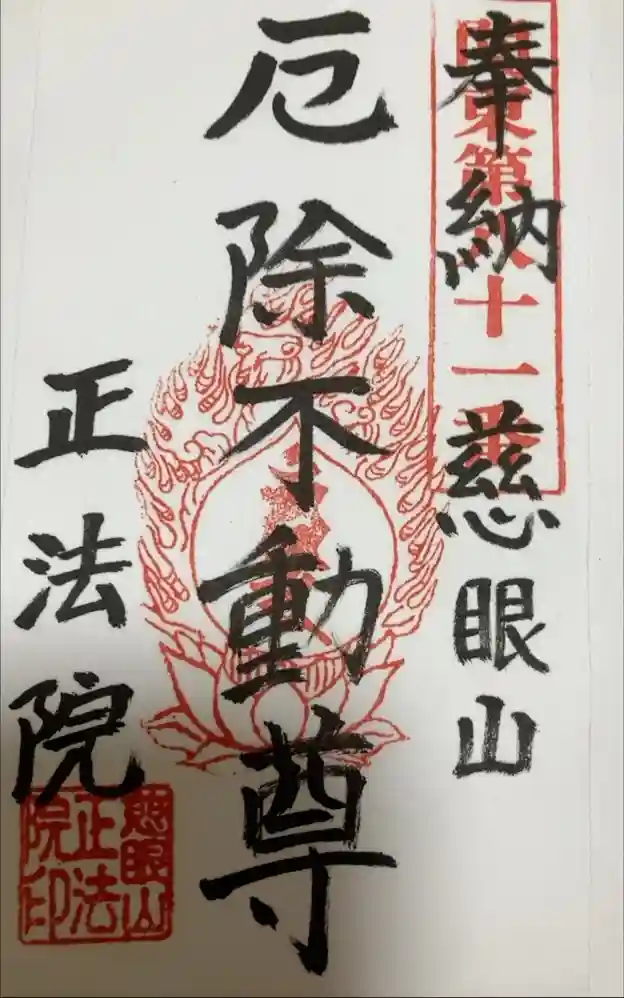 奉納 慈眼山
東第 十一番
厄除不動尊
正法院
慈眼山
正法
院印